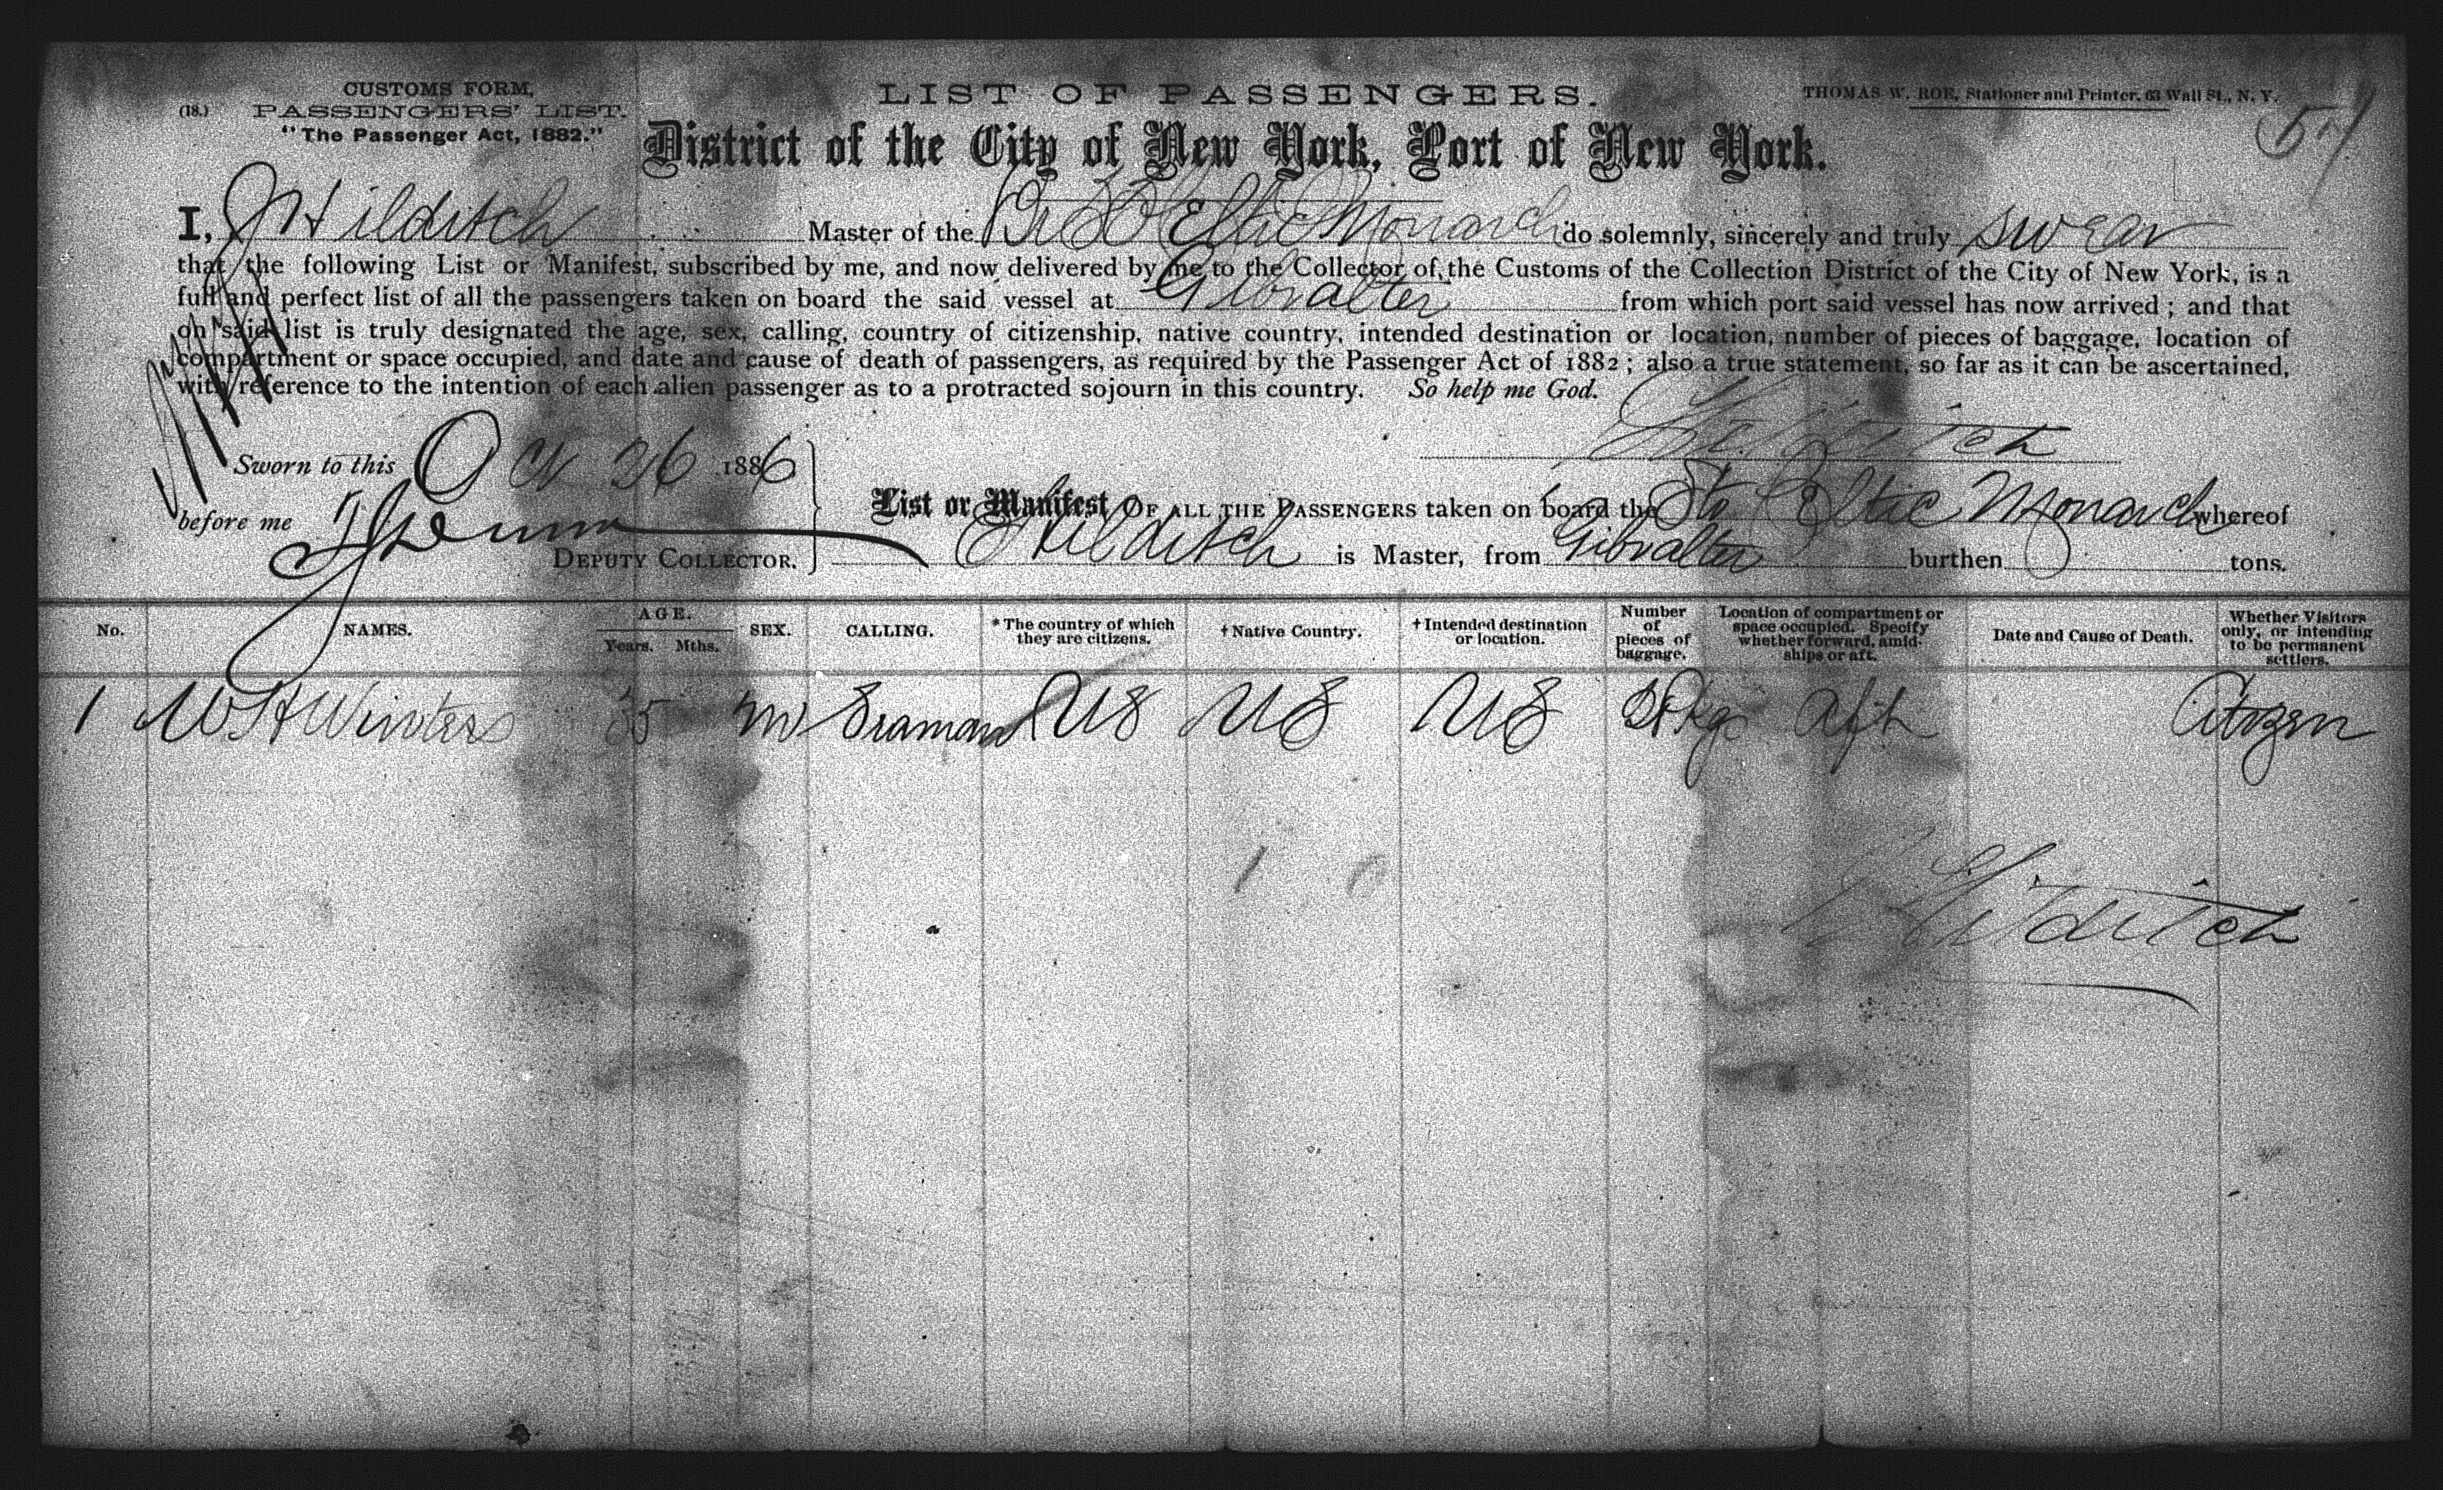 CUSTOMS FORM,
(18.) PASSENGERS' LIST.
"The Passenger Act, 1882."
LIST OF PASSENGERS.
THOMAS W. ROE, Stationer and Printer, 63 Wall St., N. Y.
District of the City of New York, Port of New York.
I, J Hilditch Master of the Br SS Celtic Monarch do solemnly, sincerely and truly swear
that the following List or Manifest, subscribed by me, and now delivered by me to the Collector of the Customs of the Collection District of the City of New York, is a
full and perfect list of all the passengers taken on board the said vessel at Gibralter from which port said vessel has now arrived ; and that
on said list is truly designated the age, sex, calling, country of citizenship, native country, intended destination or location, number of pieces of baggage, location of
compartment or space occupied, and date and cause of death of passengers, as required by the Passenger Act of 1882 ; also a true statement, so far as it can be ascertained,
with reference to the intention of each alien passenger as to a protracted sojourn in this country. So help me God.
Hilditch
Sworn to this Oct 26 1886
before me
DEPUTY COLLECTOR.
List or Manifest OF ALL THE PASSENGERS taken on board the Str Celtic Monarch whereof
Hilditch is Master, from Gibralter burthen tons.
No. NAMES. AGE. Years. Mths. SEX. CALLING. *The country of which they are citizens. †Native Country. †Intended destination or location. Number of pieces of baggage. Location of compartment or space occupied. Specify whether forward, amidships or aft. Date and Cause of Death. Whether Visitors only, or intending to be permanent settlers.
1 W H Winters 35 m Seaman US US US Pkg Aft Citizen
1 0
Hilditch